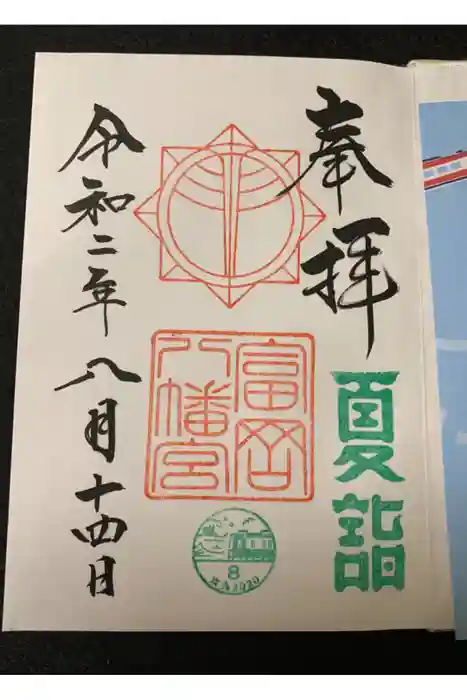 奉拝
夏詣
富岡
八幡宮
8
2020
令和二年八月十四日